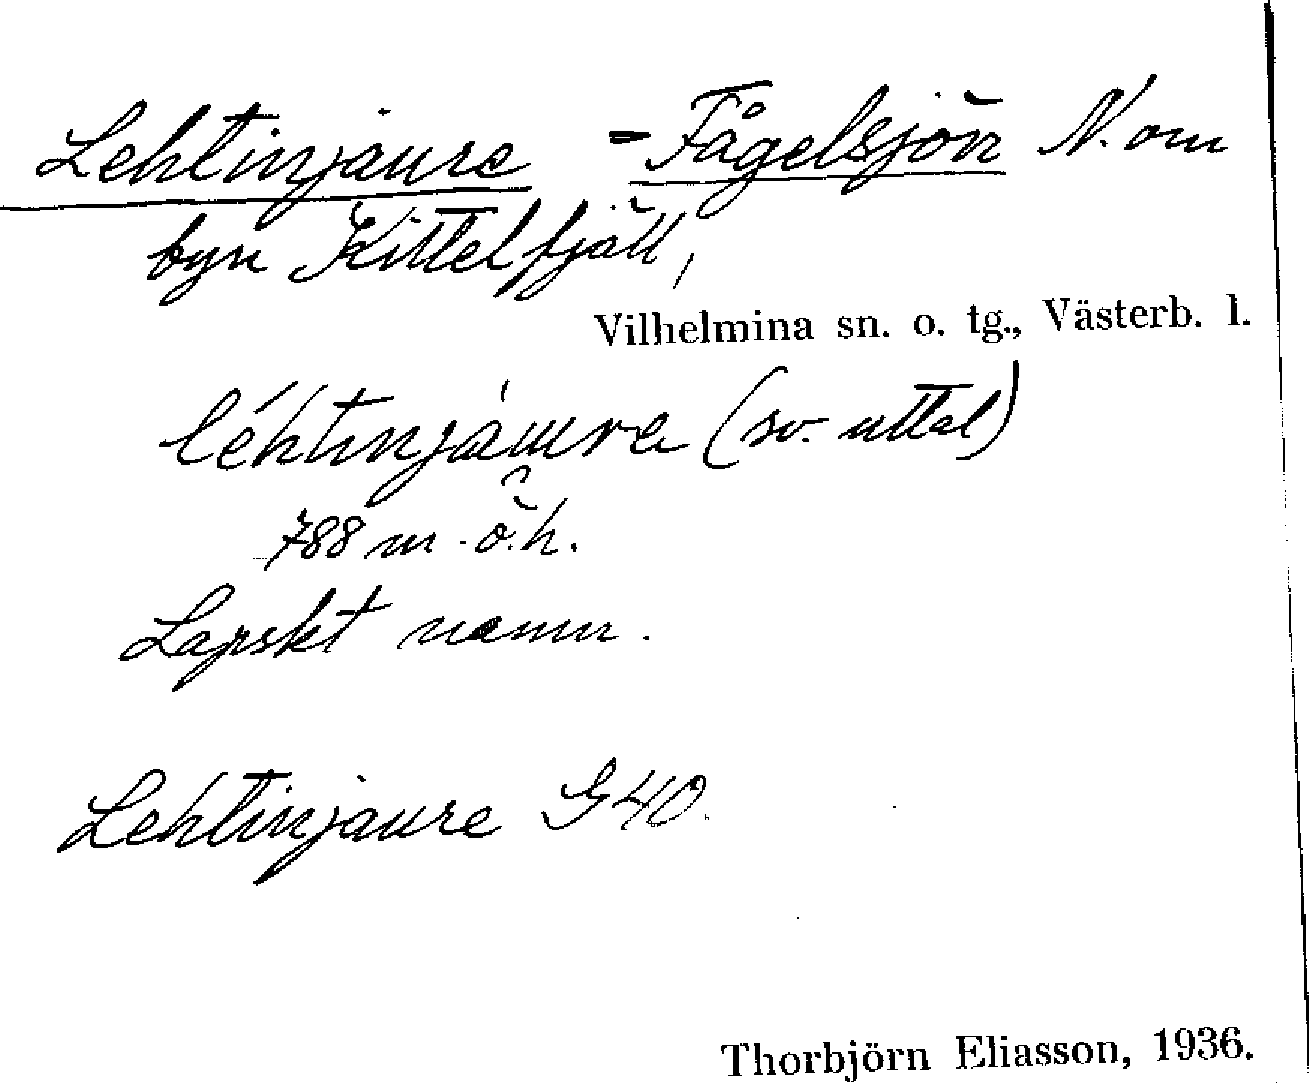 Lehtinjaure = Fågelsjön N. om
byn Kittelfjäll,
Vilhelmina sn. o. tg., Västerb. l.
(sv. uttal)
788 m. ö. h.
Lapskt namn.
Lehtinjaure G40.
Thorbjörn Eliasson, 1936.